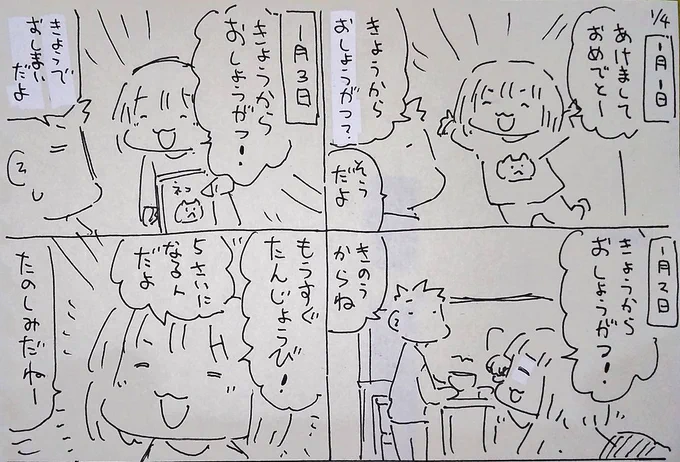 1/4
1月1日
あけまして
おめでとー
きょうから
おしょうがつ?
そう
だよ
1月2日
きょうから
おしょうがつ!
きのう
からね
1月3日
きょうから
おしょうがつ!
ネコ
きょうで
おしまい
だよ
もうすぐ
たんじょうび!
5さいに
なるん
だよ
たのしみだねー